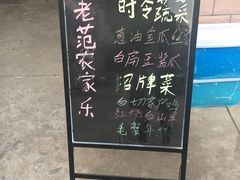 老范农家乐
时令蔬菜
葱油金瓜丝
白扁豆酱瓜
招牌菜
白切客户鸡
红烧白山羊
毛蟹年糕